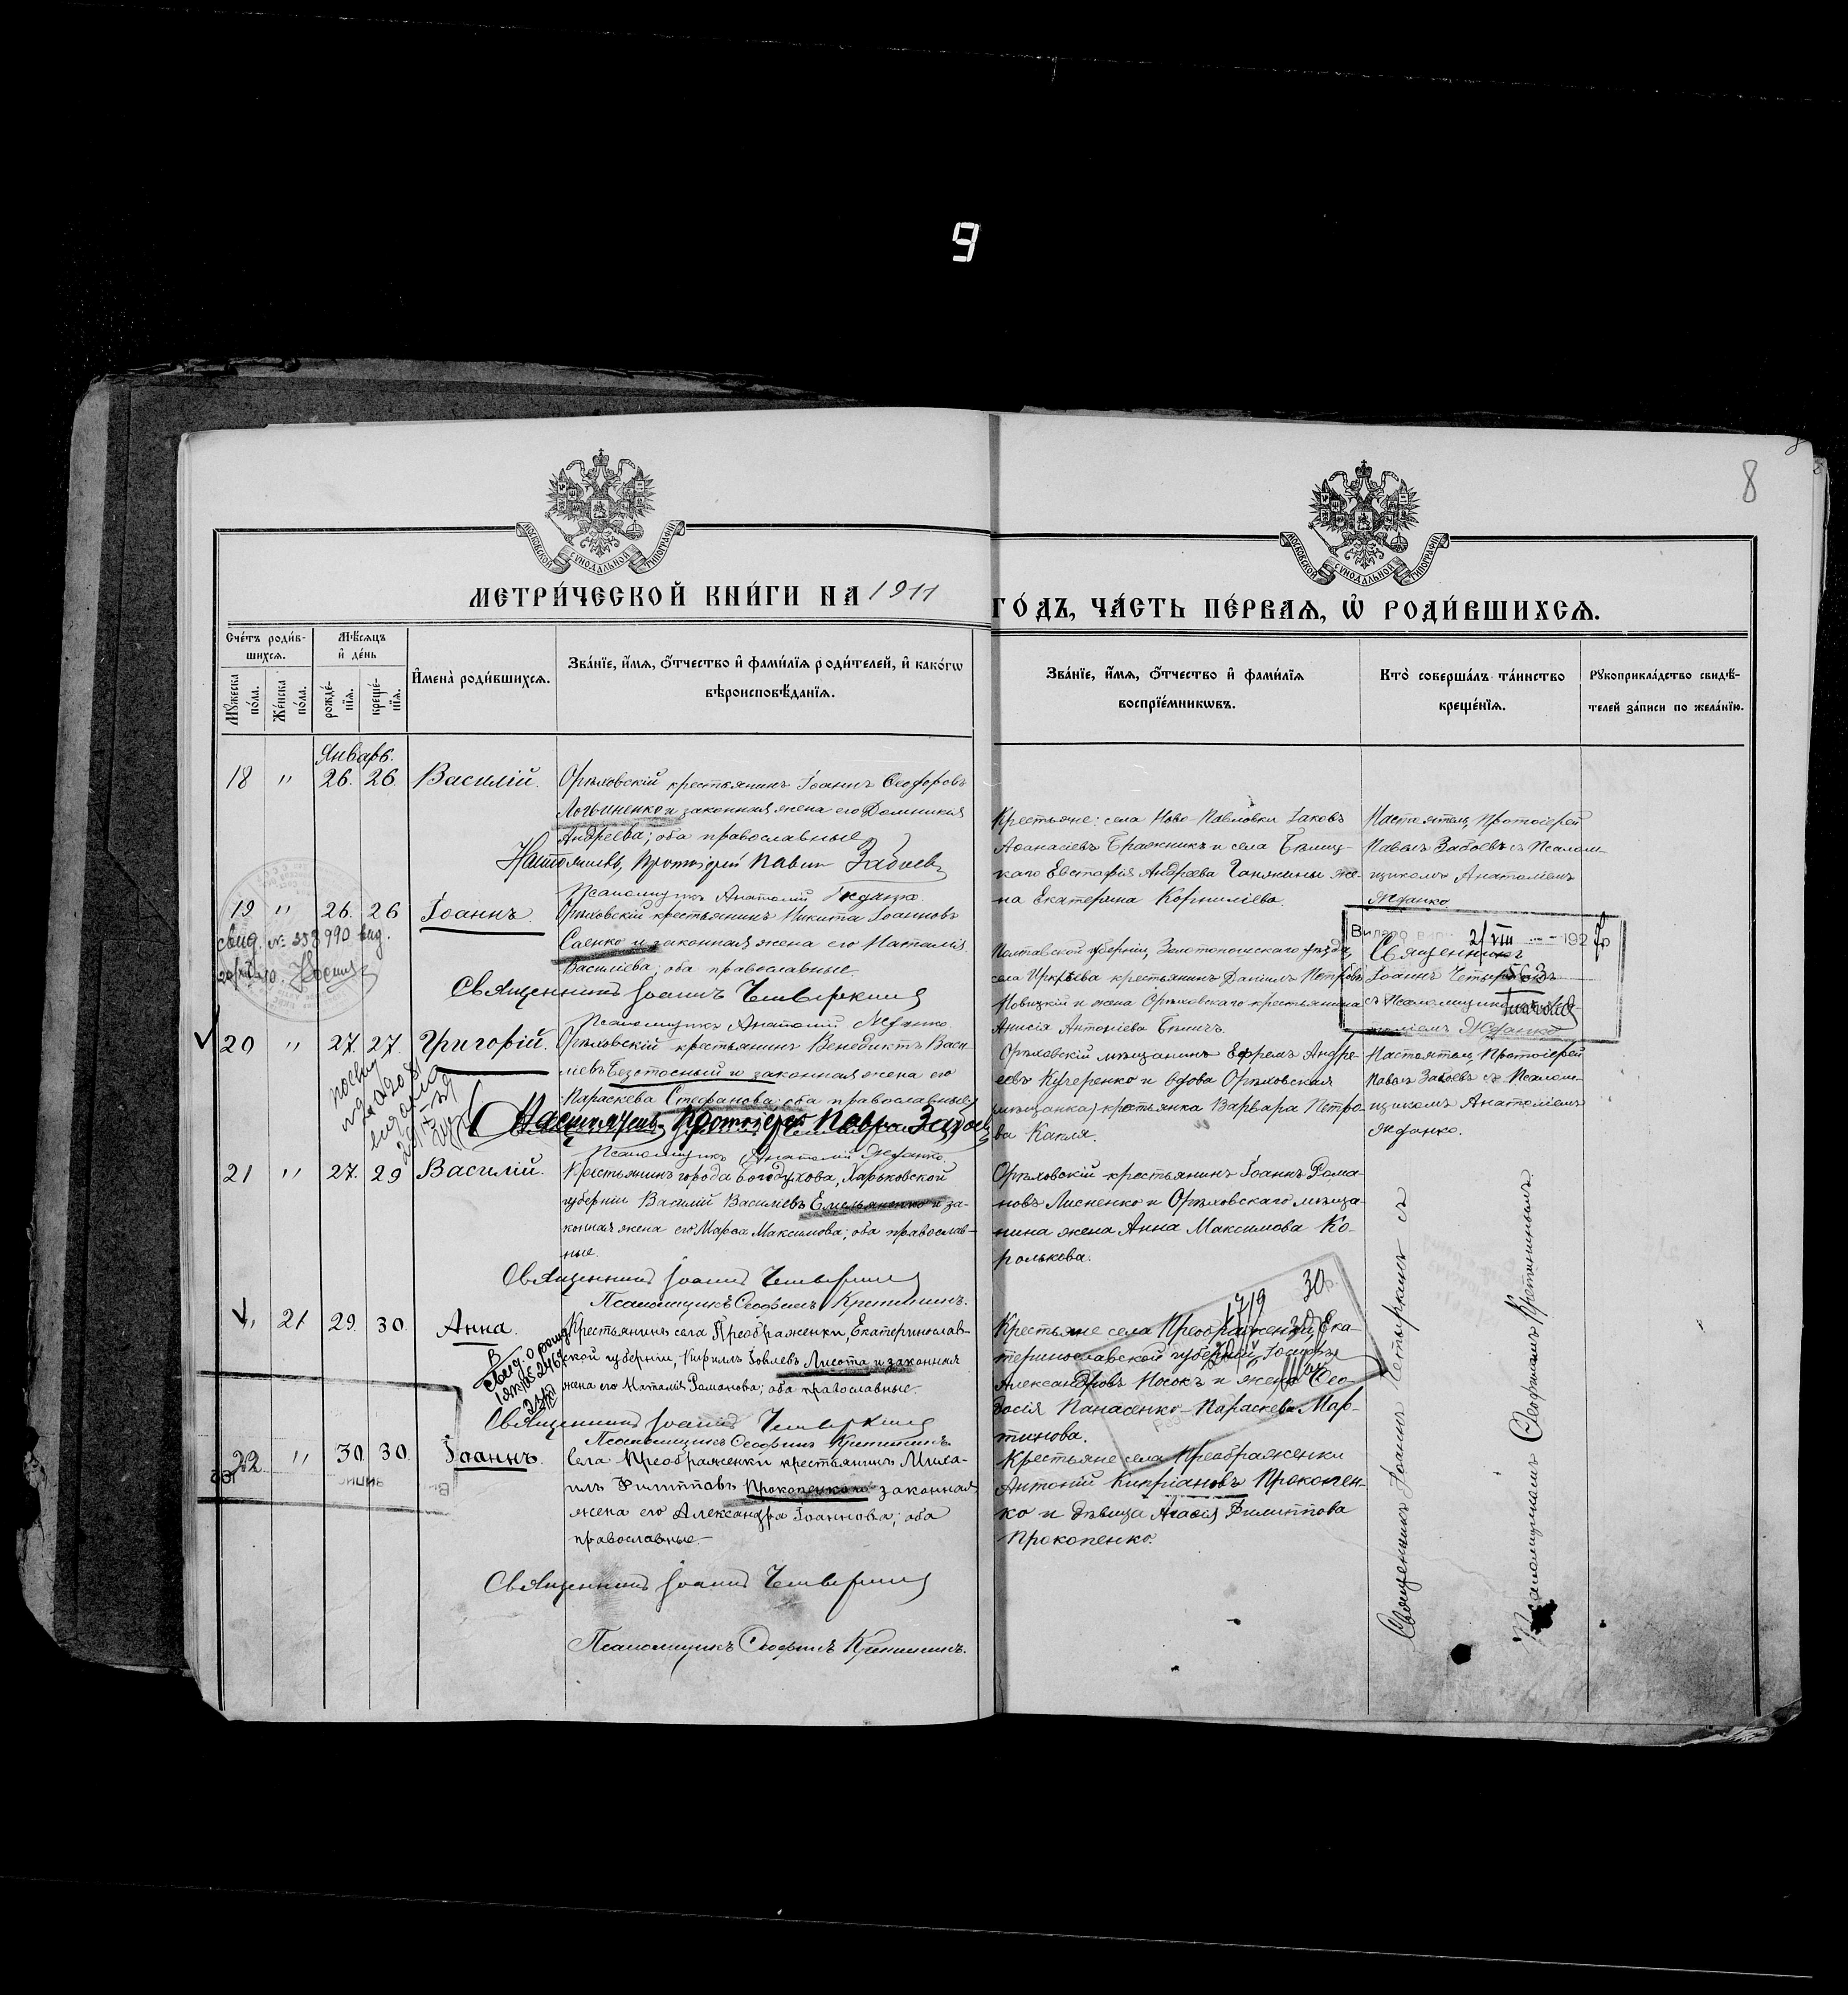 9
8
МОСКОВСКОЙ СѴНОДАЛЬНОЙ ТИПОГРАФІИ
МОСКОВСКОЙ СѴНОДАЛЬНОЙ ТИПОГРАФІИ
МЕТРИ́ЧЕСКОЙ КНИ́ГИ НА 1911
ГО́ДЪ, ЧА́СТЬ ПЕ́РВАѦ, Ѡ҆ РОДИ́ВШИХСѦ.
Сче́тъ роди́в-
шихсѧ.
Мѣ́сѧцъ
и҆ де́нь
Мꙋ́жеска по́ла.
Же́нска по́ла.
рожде́-
нїѧ.
креще́-
нїѧ.
И҆мена̀ роди́вшихсѧ.
Зва́нїе, и҆́мѧ, ѻ҆́тчество и҆ фами́лїѧ роди́телей, и҆ како́гѡ
вѣроисповѣ́данїѧ.
Зва́нїе, и҆́мѧ, ѻ҆́тчество и҆ фами́лїѧ
воспрїе́мникѡвъ.
Кто̀ соверша́лъ та́инство
креще́нїѧ.
Рꙋкоприкла́дство свидѣ́-
телей за́писи по жела́нїю.
Январь.
18 " 26. 26. Василій.
Орѣховскій крестьянинъ Іоаннъ Ѳеодоровъ
Логвиненко и законная жена его Домникія
Андреева; оба православные
Настоятель, Протоіерей Павелъ Забоевъ
Псаломщикъ Анатолій Жданко.
Крестьяне: села Ново-Павловки Іаковъ
Аѳанасіевъ Бражникъ и села
каго Евстафія Андреева Ганжины же-
на Екатерина Корниліева.
Настоятель, Протоіерей
Павелъ Забоевъ съ Псалом-
щикомъ Анатоліемъ
Жданко
19 " 26. 26 Іоаннъ.
Орѣховскій крестьянинъ Никита Іоанновъ
Саенко и законная жена его Наталія
Василіева; оба православные.
Священникъ Іоаннъ Четыркинъ
Псаломщикъ Анатолій Жданко.
свид. № 353990 выд.
Полтавской губерніи, Золотоношскаго уѣзда,
села Иркліева крестьянинъ Даніилъ Петровъ
Новицкій и жена Орѣховскаго крестьянина
Анисія Антоніева
Священникъ
Іоаннъ Четыркинъ
съ Псаломщикомъ Ана-
толіемъ Жданко
2/VIII 1927
563
20 " 27. 27. Григорій.
Орѣховскій крестьянинъ Венедиктъ Васи-
ліевъ Безотосный и законная жена его
Параскева Стефанова; оба православные
Настоятель, Протоіерей Павелъ Забоевъ
Псаломщикъ Анатолій Жданко.
Орѣховскій мѣщанинъ Ефремъ Андре-
евъ Кучеренко и вдова Орѣховская
(мѣщанка) крестьянка Варвара Петро-
ва Капля.
Настоятель, Протоіерей
Павелъ Забоевъ съ Псалом-
щикомъ Анатоліемъ
Жданко.
21 " 27. 29 Василій.
Крестьянинъ города Богодухова, Харьковской
губерніи Василій Василіевъ Емельяненко и за-
конная жена его Марѳа Максимова; оба православ-
ные.
Священникъ Іоаннъ Четыркинъ
Псаломщикъ Ѳеофилъ Кретининъ.
Орѣховскій крестьянинъ Іоаннъ Рома-
новъ Лисненко и Орѣховскаго мѣща-
нина жена Анна Максимова Ко-
ролькова.
" 21 29. 30. Анна.
Крестьянинъ села Преображенки, Екатеринослав-
ской губерніи, Кириллъ Іовлевъ Лисота и законная
жена его Наталія Романова; оба православные.
Священникъ Іоаннъ Четыркинъ
Псаломщикъ Ѳеофилъ Кретининъ.
1719
30
Крестьяне села Преображенки, Ека-
теринославской губерніи, Іосифъ
Александровъ Носокъ и жена Ѳео-
досія Панасенко-Параскева Мар-
тинова.
22. " 30. 30. Іоаннъ.
Села Преображенки крестьянинъ Миха-
илъ Филипповъ Прокопенко и законная
жена его Александра Іоаннова; оба
православные.
Священникъ Іоаннъ Четыркинъ
Псаломщикъ Ѳеофилъ Кретининъ.
Крестьяне села Преображенки
Антоній Кипріановъ Прокопен-
ко и дѣвица Агафія Филиппова
Прокопенко.
Священникъ Іоаннъ Четыркинъ съ
Псаломщикомъ Ѳеофиломъ Кретининымъ